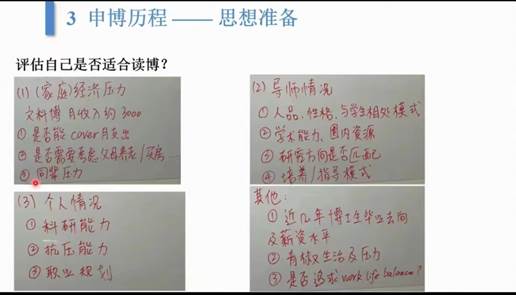 3 申博历程 —— 思想准备
评估自己是否适合读博？
(1) (家庭)经济压力
文科博 月收入约 3000
① 是否能 cover 月支出
② 是否需要考虑父母养老/买房...
③ 同辈压力
(2) 导师情况
① 人品、性格、与学生相处模式
② 学术能力、圈内资源
③ 研究方向是否匹配
④ 培养/指导模式
(3) 个人情况
① 科研能力
② 抗压能力
③ 职业规划
其他：
① 近几年博士生毕业去向
及薪资水平
② 青椒生活及压力
③ 是否追求 work life balance?